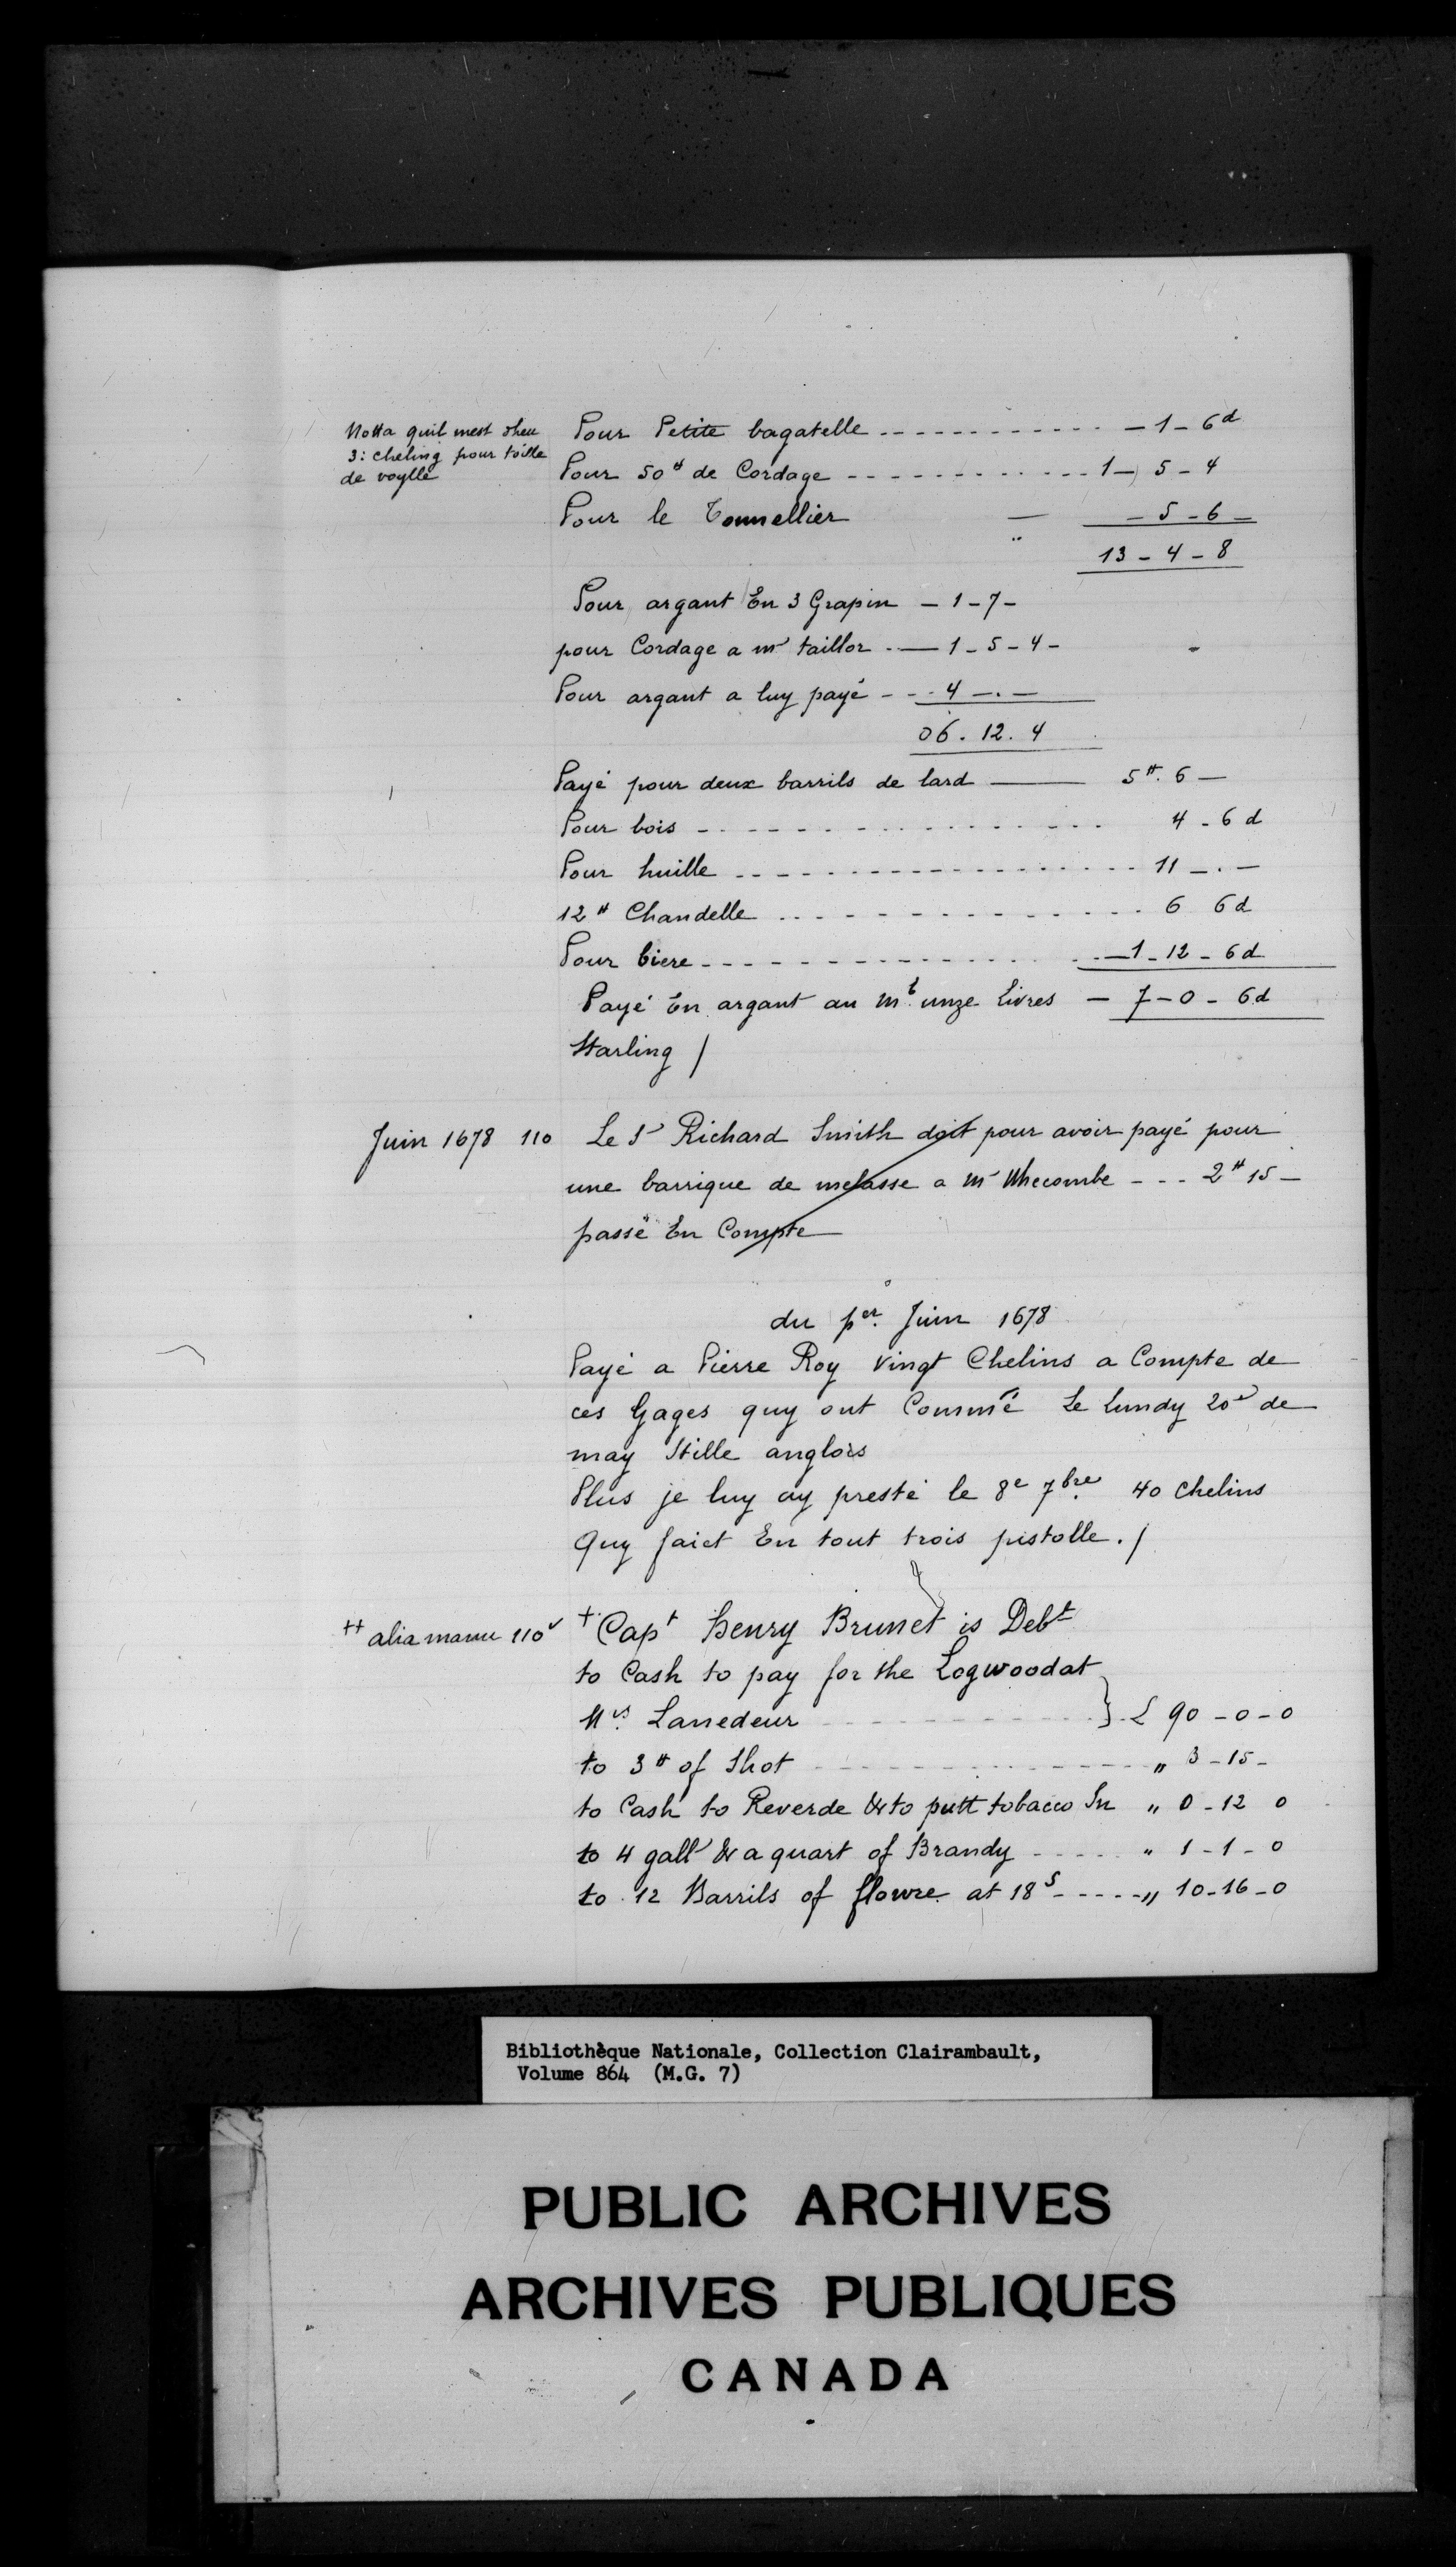 Notta quil mest dheu
3: cheling pour toille
de voylle
Pour Petite bagatelle ------------ 1 - 6d
Pour 50# de Cordage ------------- 1 - 5 - 4
Pour le Tonnellier — - 5 - 6 -
13 - 4 - 8
Pour argant En 3 Grapin - 1 - 7 -
pour Cordage a mr taillor - 1 - 5 - 4 -
Pour argant a luy payé - - 4 - . -
06 . 12 . 4
Payé pour deux barrils de lard — 5# . 6 -
Pour bois ---------------- 4 - 6 d
Pour huille ------------------ 11 - . -
12# Chandelle ---------------- 6 6d
Pour biere ---------------- 1 - 12 - 6d
Payé En argant au mt unze Livres - 7 - 0 - 6d
Starling /
Juin 1678 110 Le Sr Richard Smith doit pour avoir payé pour
une barrique de melasse a mr Whecombe - - - 2# 15 -
passé En Compte
du per. Juin 1678
Payé a Pierre Roy Vingt Chelins a Compte de
ces Gages quy ont Commé Le Lundy 20e de
may Stille anglois
Plus je luy ay presté le 8e 7bre. 40 Chelins
Quy faict En tout trois pistolle . /
++ alia manu 110v + Capt Henry Brunet is Debt
to Cash to pay for the Logwoodat
Mrs. Lanedeur ------------ } £ 90 - 0 - 0
to 3# of Shot ---------------- " 3 - 15 -
to Cash to Reverde & to putt tobacco In " 0 - 12 0
to 4 gall & a quart of Brandy ----- " 1 - 1 - 0
to 12 Barrils of flowre at 18s ----- " 10 - 16 - 0
Bibliothèque Nationale, Collection Clairambault,
Volume 864 (M.G. 7)
PUBLIC ARCHIVES
ARCHIVES PUBLIQUES
CANADA